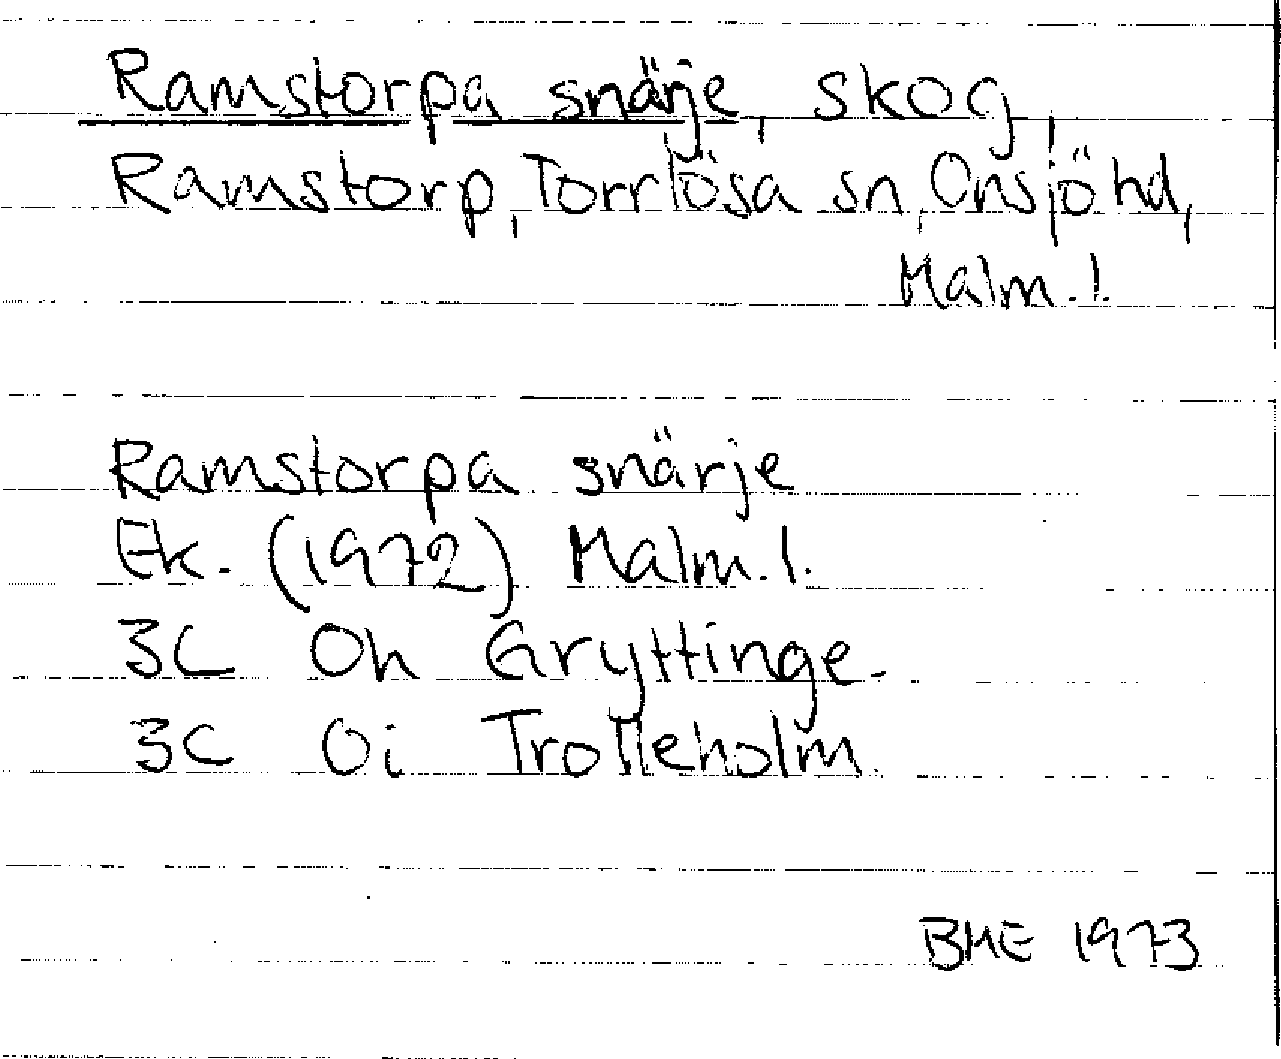 Ramstorpa snärje, skog,
Ramstorp, Torrlösa sn, Onsjö hd,
Malm. l.
Ramstorpa snärje
Ek. (1972) Malm. l.
3C Oh Gryttinge.
3C Oi Trolleholm.
BME 1973